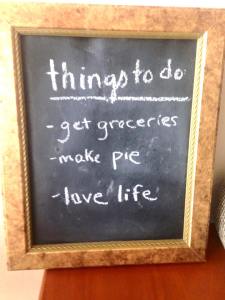 things to do
- get groceries
- make pie
- love life